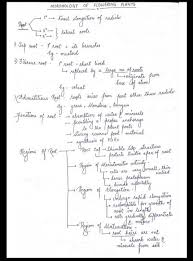 MORPHOLOGY OF FLOWERING PLANTS
Root
1° → Direct elongation of radicle
2°
3°
lateral roots
1) Tap root → 1° root + its branches
eg. mustard
2) Fibrous root → 1° root - short lived
replaced by a large no. of roots
originate from base of stem
eg. wheat
3) Adventitious → roots arise from part other than radicle
eg. grass, Monstera, banyan
Functions of root → absorption of water & minerals
providing a proper anchorage to the plant parts
storing reserve food material
synthesis of PGR
Regions of Root
Root Cap → thimble like structure
protects tender apex of root
Region of Meristematic activity
cells are very small, thin walled, dense protoplasm
divide repeatedly
Region of Elongation
undergo rapid elongation
responsible for growth of root in length
cells gradually differentiate & mature
Region of Maturation
root hairs are out
absorb water & minerals from soil